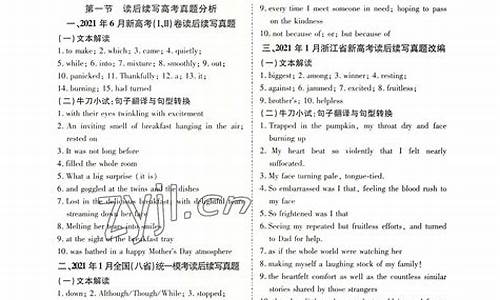 第一节 读后续写高考真题分析
一、2021 年 6 月新高考(Ⅰ、Ⅱ)卷读后续写真题
(一)文本解读
1. to make; 2. which; 3. care; 4. quietly;
5. while; 6. into; 7. mixture; 8. smoothly; 9. out;
10. panicked; 11. Thankfully; 12. a; 13. it;
14. burning; 15. had turned
(二)牛刀小试:句子翻译与句型转换
1. with their eyes twinkling with excitement
2. An inviting smell of breakfast hanging in the air;
rested on
3. It was not long before
4. filled the whole room
5. What a big surprise (it is)
6. and goggled at the twins and the dishes
7. Lost in the delicious breakfast, with delightful tears
streaming down her face
8. Melting her tears into smiles
9. at the sight of the breakfast tray
10. was bathed in a happy Mother's Day atmosphere
二、2021 年 1 月全国(八省)统一模考读后续写真题
(一)文本解读
1. down; 2. Although/Though/While; 3. stopped;
9. every time I meet someone in need; hoping to pass
on the kindness
10. not because of; or; but because of
三、2021 年 1 月浙江省新高考读后续写真题改编
(一)文本解读
1. biggest; 2. among; 3. winner; 4. resting;
5. against; 6. jammed; 7. excited; 8. fruitless;
9. brother's; 10. helpless
(二)牛刀小试:句子翻译与句型转换
1. Trapped in the pumpkin, my throat dry and face
burning up
2. My heart beat so violently that I felt nearly
suffocated.
3. My face turning pale, tongue-tied.
4. So embarrassed was I that, feeling the blood rush to
my face
5. So frightened was I that
6. Seeing my repeated but fruitless efforts, and turned
to Dad for help.
7. as if the whole world were watching her
8. making myself a laughing stock of my family!
9. the heartfelt comfort as well as the countless similar
stories shared by those strangers
zyjl.cn